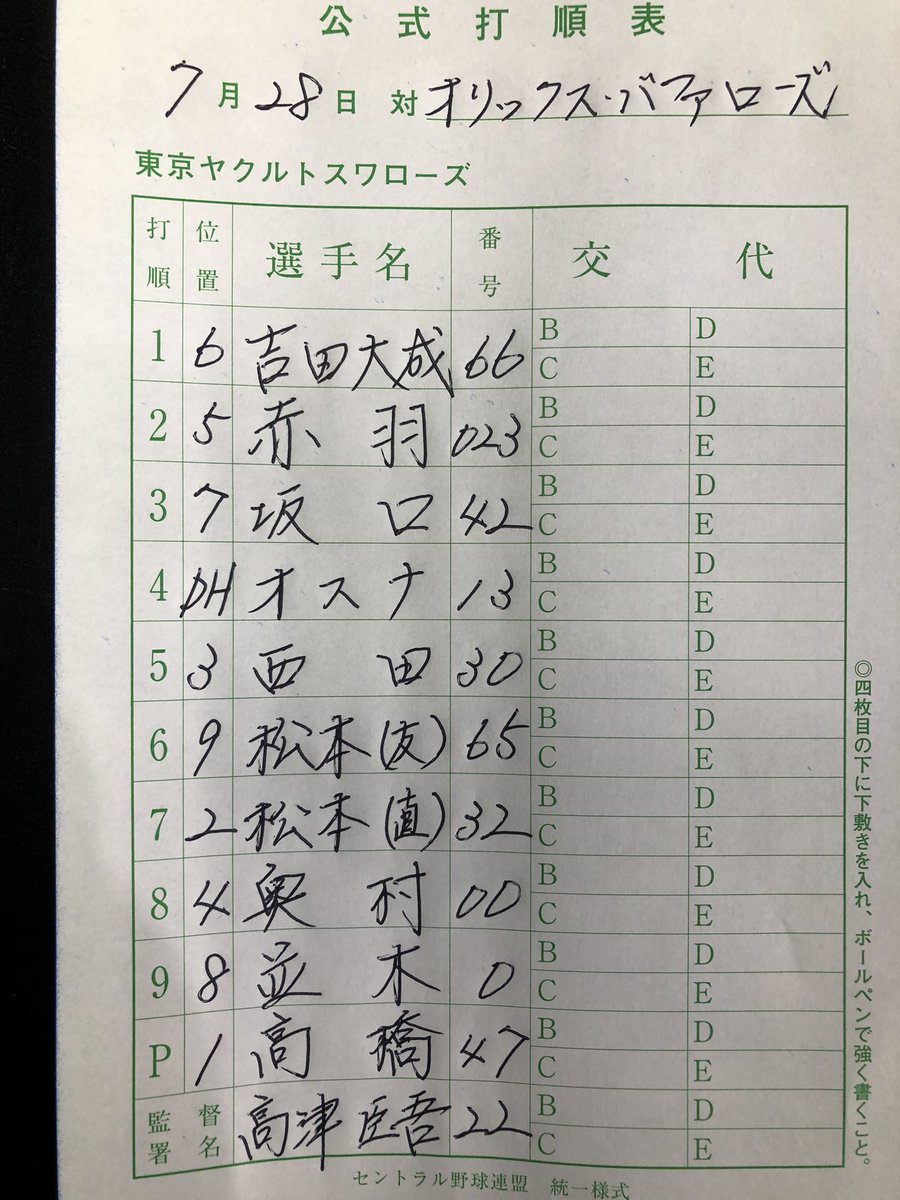 公式打順表
7月28日 対 オリックス・バファローズ
東京ヤクルトスワローズ
打順 位置 選手名 番号 交代
1 6 吉田大成 66 B D
C E
2 5 赤羽 023 B D
C E
3 7 坂口 42 B D
C E
4 DH オスナ 13 B D
C E
5 3 西田 30 B D
C E
6 9 松本(友) 65 B D
C E
7 2 松本(直) 32 B D
C E
8 4 奥村 00 B D
C E
9 8 並木 0 B D
C E
P 1 高橋 47 B D
C E
監督署名 高津臣吾 22 B D
C E
セントラル野球連盟 統一様式
◎四枚目の下に下敷きを入れ、ボールペンで強く書くこと。